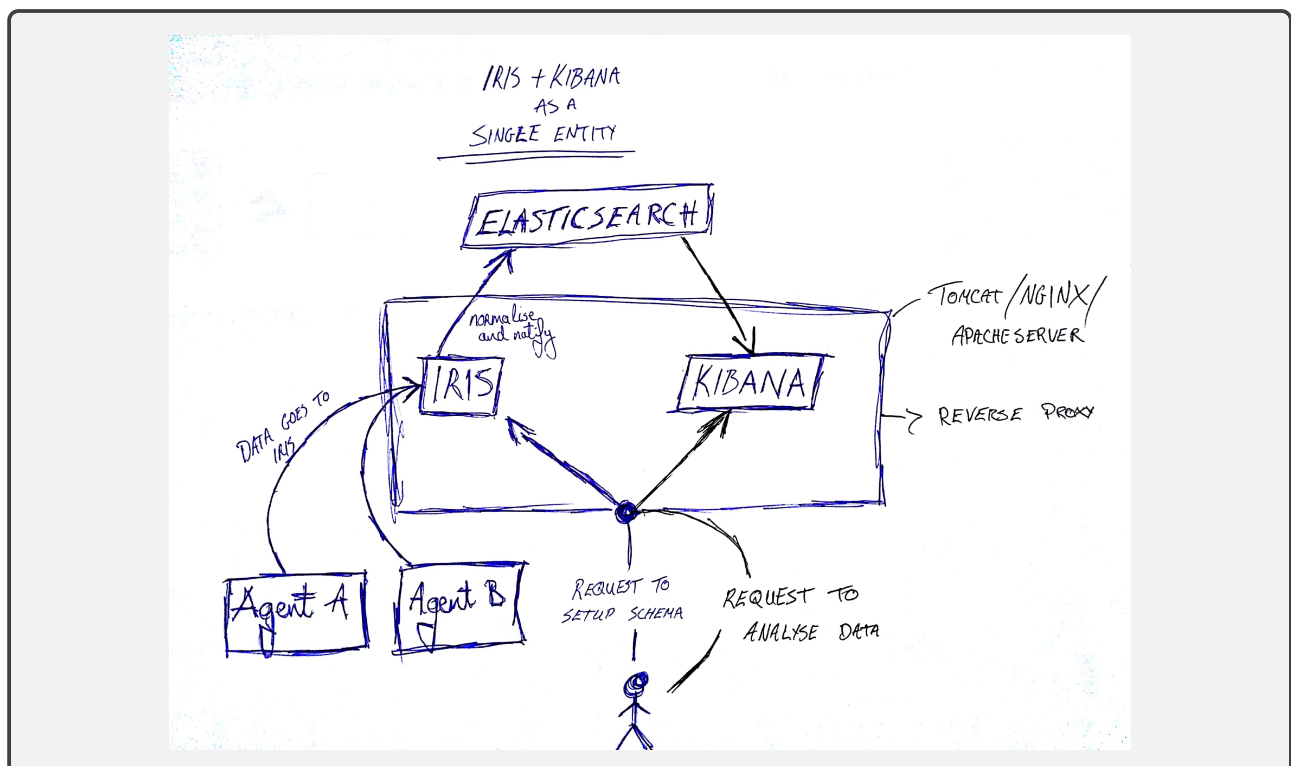 IRIS + KIBANA
AS A
SINGLE ENTITY
ELASTICSEARCH
normalise
and notify
TOMCAT/NGINX/
APACHE SERVER
IRIS
KIBANA
REVERSE PROXY
DATA GOES TO
IRIS
Agent A
Agent B
REQUEST TO
SETUP SCHEMA
REQUEST TO
ANALYSE DATA